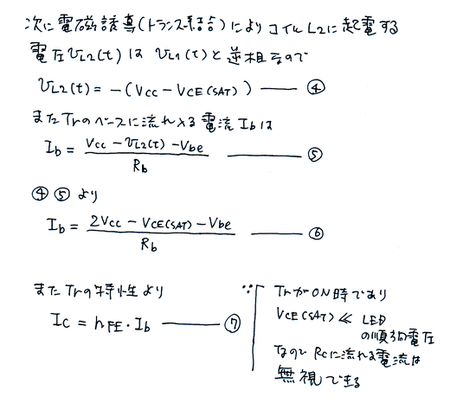 次に電磁誘導(トランス結合)によりコイルL2に起電する
電圧VL2(t)はVL1(t)と逆相なので
VL2(t) = -(Vcc - VCE(SAT)) ―― ④
またTrのベースに流れ込る電流Ibは
Ib = (Vcc - VL2(t) - Vbe) / Rb ―― ⑤
④⑤より
Ib = (2Vcc - VCE(SAT) - Vbe) / Rb ―― ⑥
またTrの特性より
Ic = hFE・Ib ―― ⑦
∵ TrがON時であり
VCE(SAT) ≪ LED
の順方向電圧
なのでRcに流れる電流は
無視できる